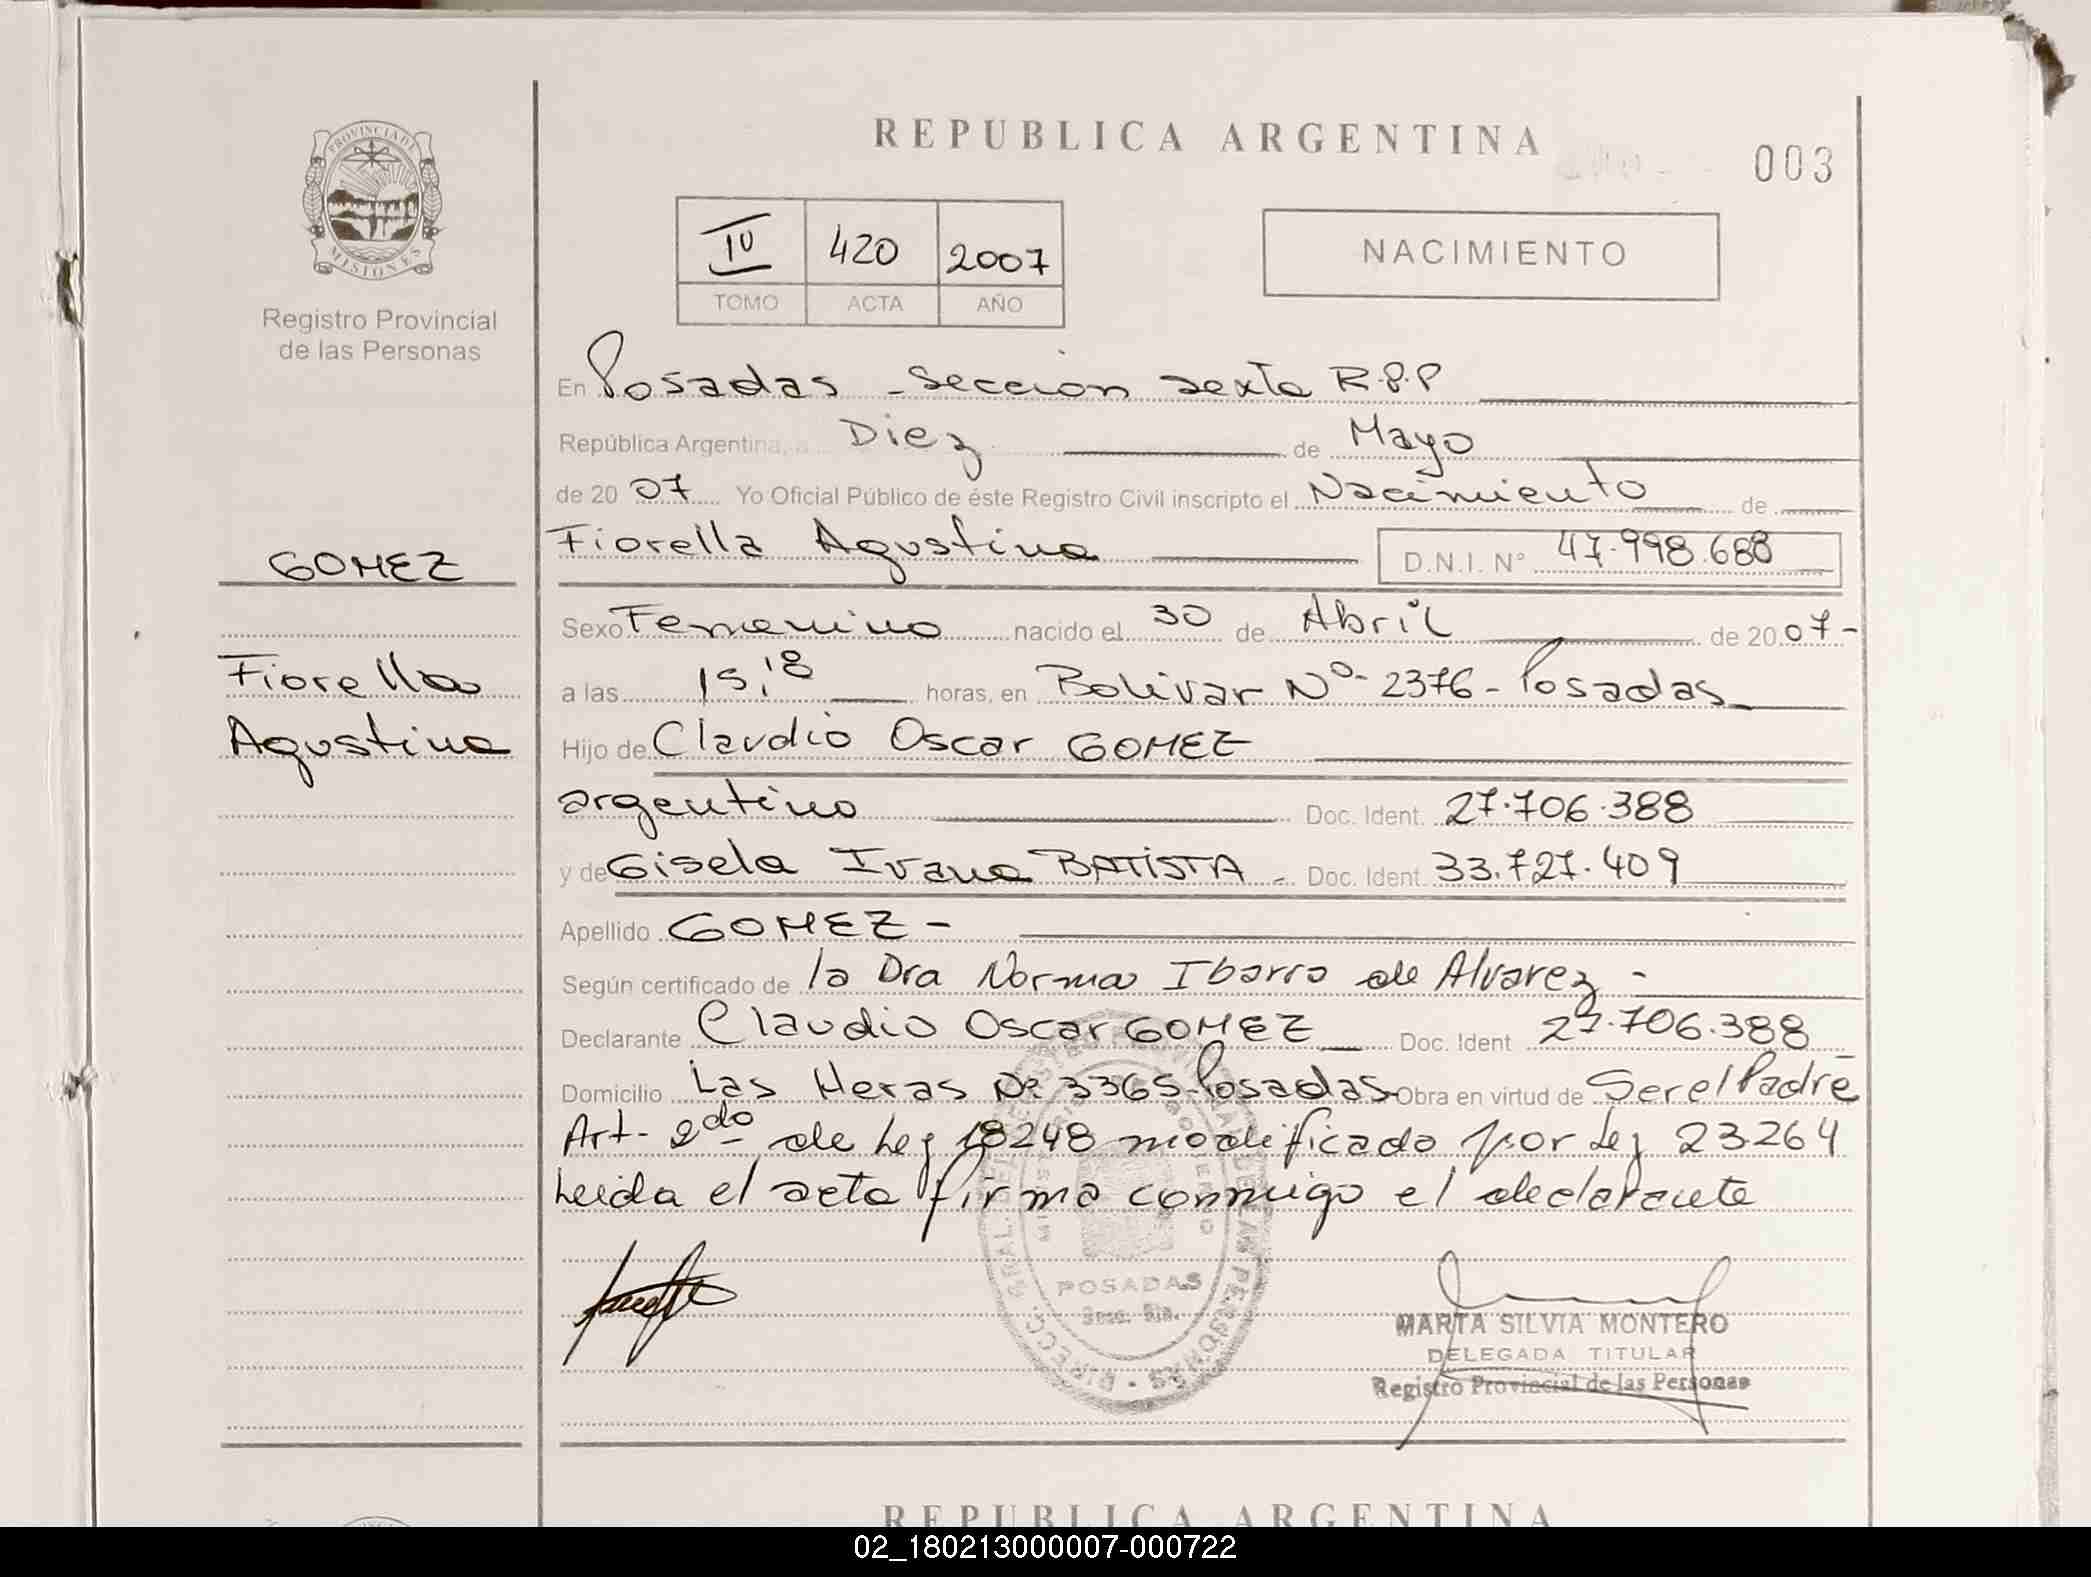 PROVINCIA DE
MISIONES
Registro Provincial
de las Personas
REPUBLICA ARGENTINA
003
IV 420 2007
TOMO ACTA AÑO
NACIMIENTO
En Posadas - Seccion sexta R.P.P
República Argentina, a Diez de Mayo
de 20 07 Yo Oficial Público de éste Registro Civil inscripto el Nacimiento de
Fiorella Agustina D.N.I. Nº 47.998.688
GOMEZ
Sexo Femenino nacido el 30 de Abril de 20 07-
Fiorella
a las 15,18 horas, en Bolivar Nº 2376 - Posadas
Agustina
Hijo de Claudio Oscar GOMEZ
argentino Doc. Ident. 27.706.388
y de Gisela Ivana BATISTA - Doc. Ident. 33.727.409
Apellido GOMEZ -
Según certificado de la Dra Norma Ibarra de Alvarez -
Declarante Claudio Oscar GOMEZ Doc. Ident 27.706.388
Domicilio Las Heras Nº 3365 - Posadas Obra en virtud de Ser el Padre
Art- 2do de Ley 18248 modificado por Ley 23264
Leida el acta firma conmigo el declarante
POSADAS
MARTA SILVIA MONTERO
DELEGADA TITULAR
Registro Provincial de las Personas
REPUBLICA ARGENTINA
02_180213000007-000722